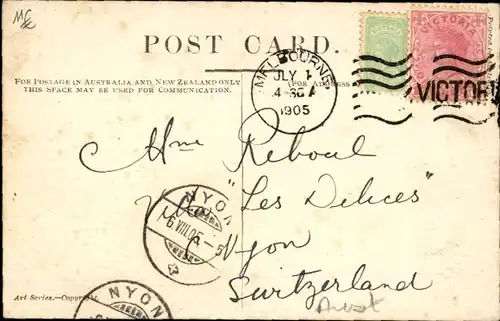 M&C
POST CARD.
VICTORIA
FOR POSTAGE IN AUSTRALIA AND NEW ZEALAND ONLY
THIS SPACE MAY BE USED FOR COMMUNICATION.
(FOR ADDRESS
MELBOURNE
JULY 1
1905
VICTOR
Reboul
NYON
6 VIII 05 - 5
"Les Delices"
Nyon
Switzerland
Art Series.—Copyright
NYON